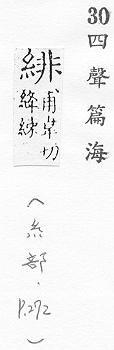 30四聲篇海
緋
甫韋切
絳練
(糸部.P.272)